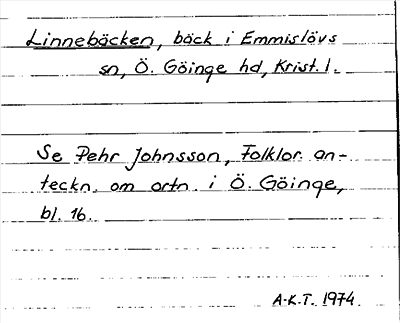 Linnebäcken, bäck i Emmislövs
sn, Ö. Göinge hd, Krist. l.
Se Pehr Johnsson, Folklor. an-
teckn. om ortn. i Ö. Göinge,
bl. 16.
A-K.T. 1974.